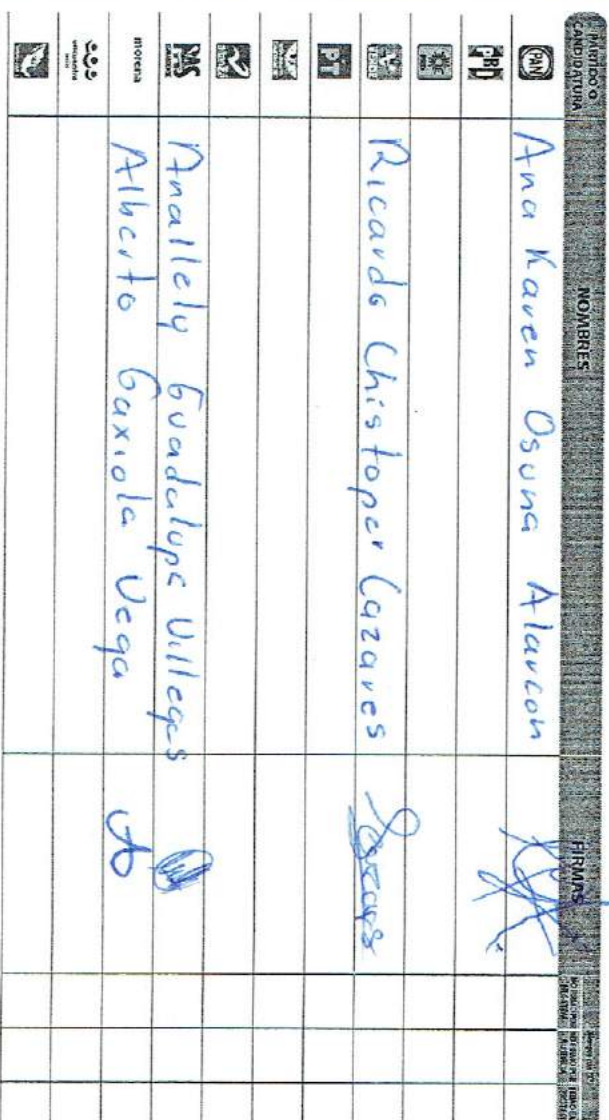 PARTIDO O CANDIDATURA NOMBRES FIRMAS
PAN Ana Karen Osuna Alarcon
PRD
VERDE Ricardo Chistoper Cazares
PT
PAS Anallely Guadalupe Villegas
morena Alberto Gaxiola Vega
encuentro